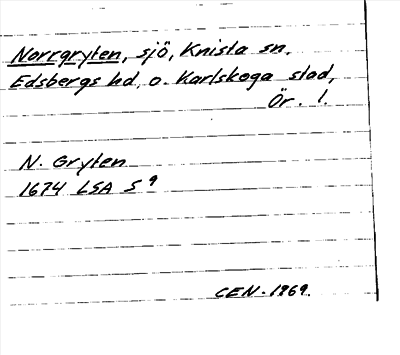 Norrgryten, sjö, Knista sn.
Edsbergs hd. o. Karlskoga stad,
Ör. l.
N. Gryten
1674 LSA S 9
CEN. 1969.